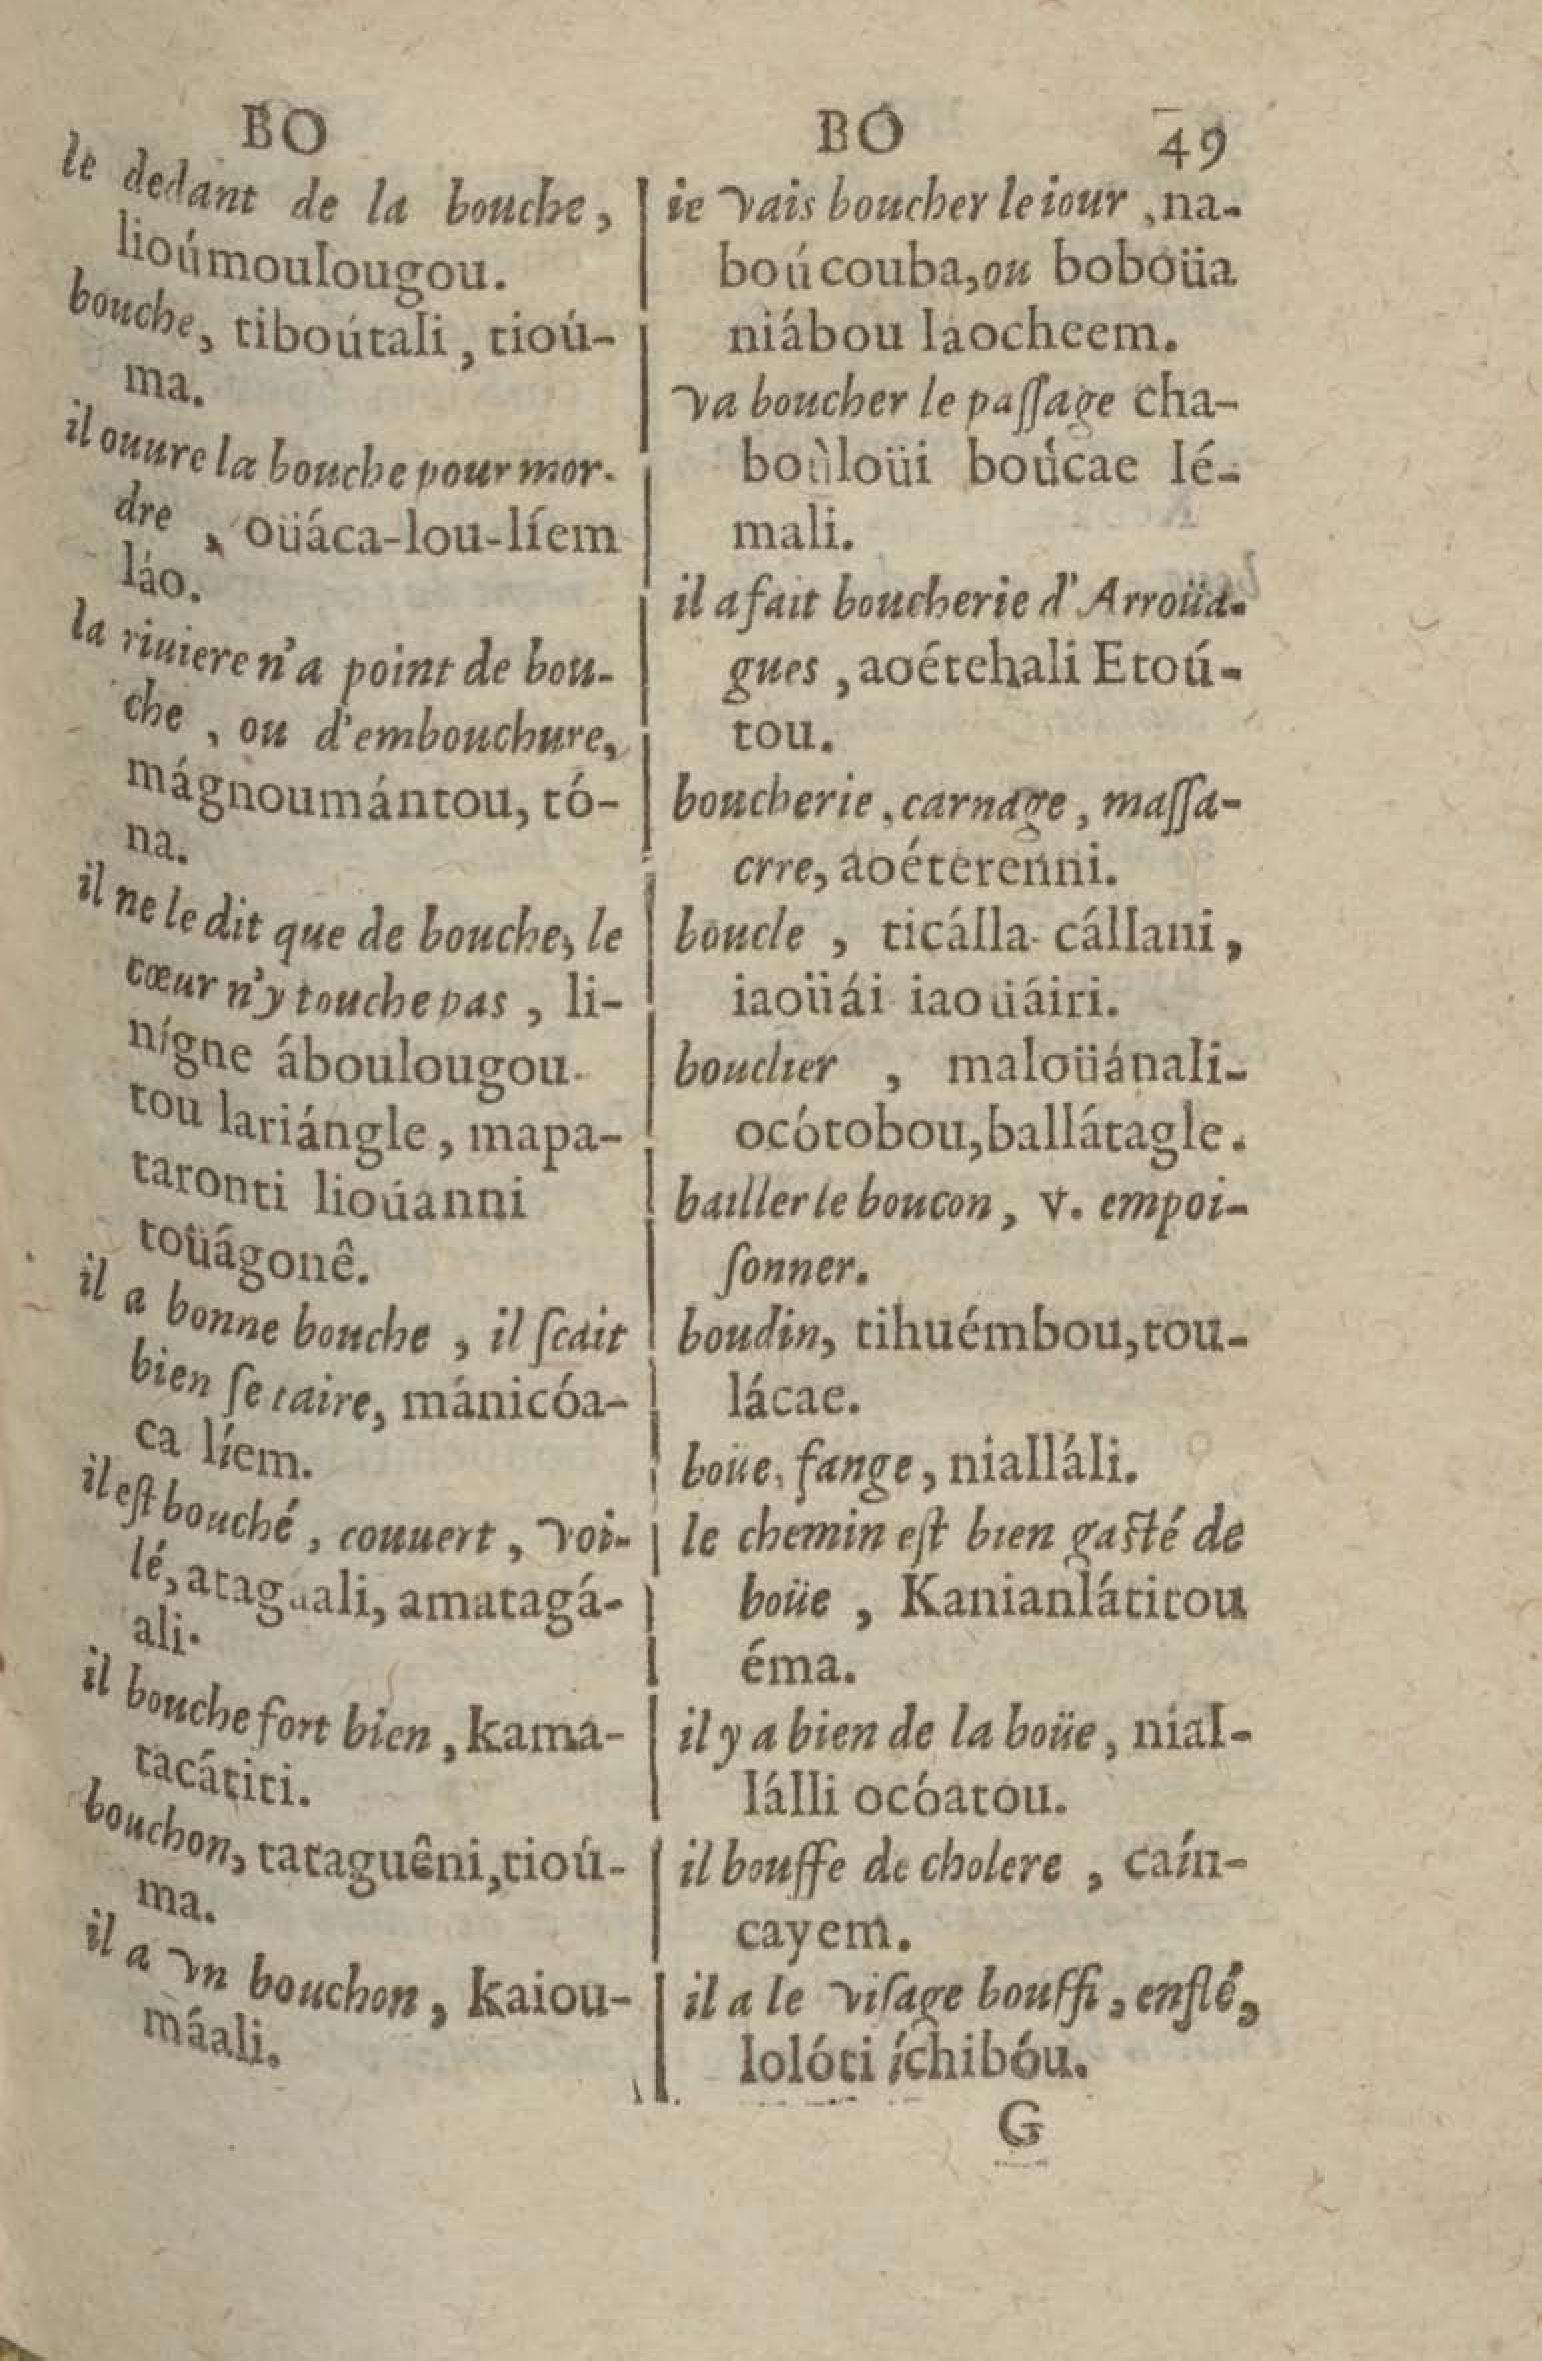 BO
le dedant de la bouche,
lioúmoulougou.
bouche, tiboútali, tioú-
ma.
il ouure la bouche pour mor-
dre, oüáca-lou-líem
láo.
la riuiere n'a point de bou-
che, ou d'embouchure,
mágnoumántou, tó-
na.
il ne le dit que de bouche, le
cœur n'y touche pas, li-
nígne áboulougou-
tou lariángle, mapa-
taronti lioúanni
toüágonê.
il a bonne bouche, il ſcait
bien ſe taire, mánicóa-
ca líem.
il eſt bouché, couuert, voi-
lé, atagáali, amatagá-
ali.
il bouche fort bien, kama-
tacátiti.
bouchon, tataguêni, tioú-
ma.
il a vn bouchon, kaiou-
máali.
BO 49
ie vais boucher le iour, na-
boúcouba, ou boboüa
niábou laocheem.
va boucher le paſſage cha-
boùloüi boúcae lé-
mali.
il a fait boucherie d'Arroüa-
gues, aoétehali Etoú-
tou.
boucherie, carnage, maſſa-
crre, aoéterenni.
boucle, ticálla-cállani,
iaoüái iaoüáiri.
bouclier, maloüánali-
ocótobou, ballátagle.
bailler le boucon, v. empoi-
ſonner.
boudin, tihuémbou, tou-
lácae.
boüe, fange, nialláli.
le chemin eſt bien gaſté de
boüe, Kanianlátitou
éma.
il y a bien de la boüe, nial-
lálli ocóatou.
il bouffe de cholere, caín-
cayem.
il a le viſage bouffi, enflé,
lolóti íchibóu.
G